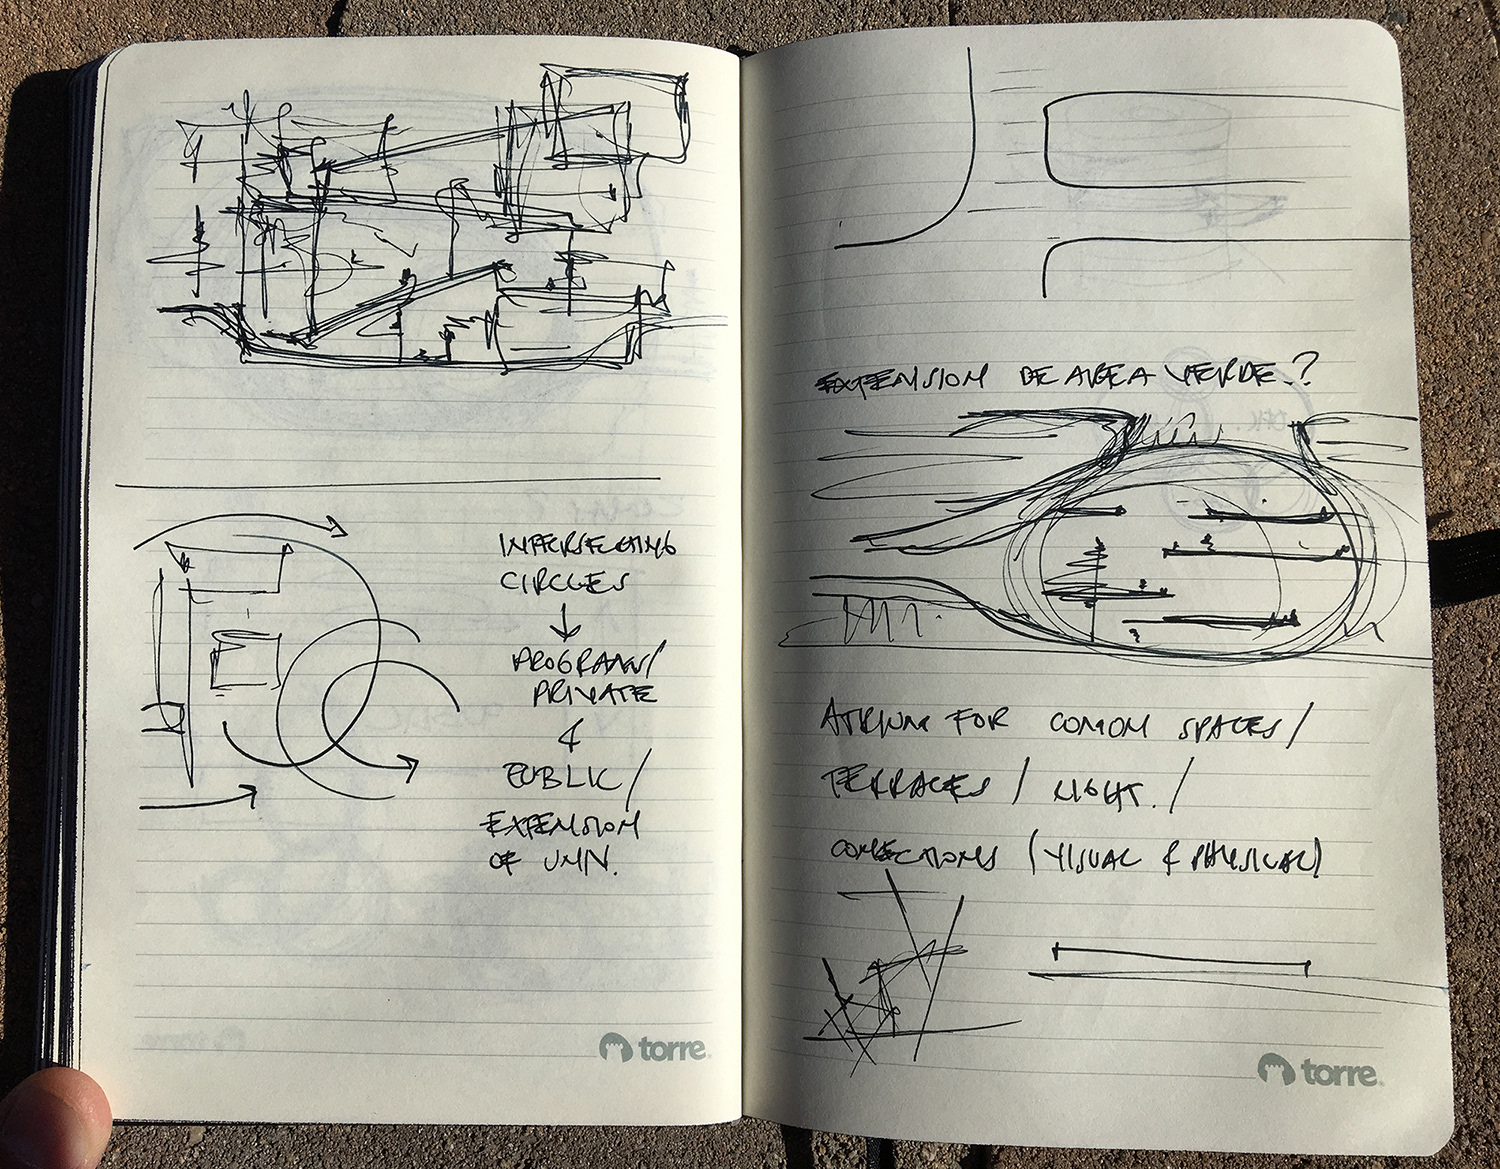 INTERSECTING
CIRCLES
PROGRAM/
PRIVATE
&
PUBLIC/
EXTENSION
OF UNIV.
torre
EXTENSION DE AREA VERDE.?
ATRIUM FOR COMON SPACES/
TERRACES/ LIGHT./
CONECTIONS (VISUAL & PHYSICAL)
torre